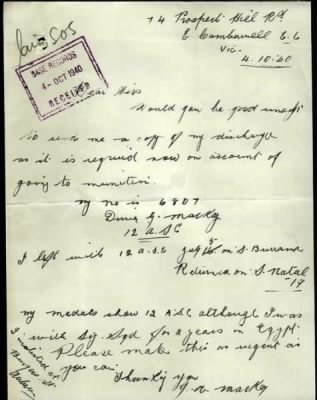 74 Prospect Hill Rd
E Camberwell E.6
Vic.
4.10.40
BASE RECORDS
4-OCT 1940
RECEIVED
Dear Sirs
Would you be good enough
to send me a copy of my discharge
as it is required now on account of
going to munition.
my no is 6807
G. Mackey
12 A.S.C
I left with 12 A.S.C on S. Burrana
Returned on S. Natal
my medals show 12 A.S.C although I was
with Sig. Sqd for 2 years in Egypt
Please make this as urgent as
you can.
Thanking you
Mackey
I enlisted at